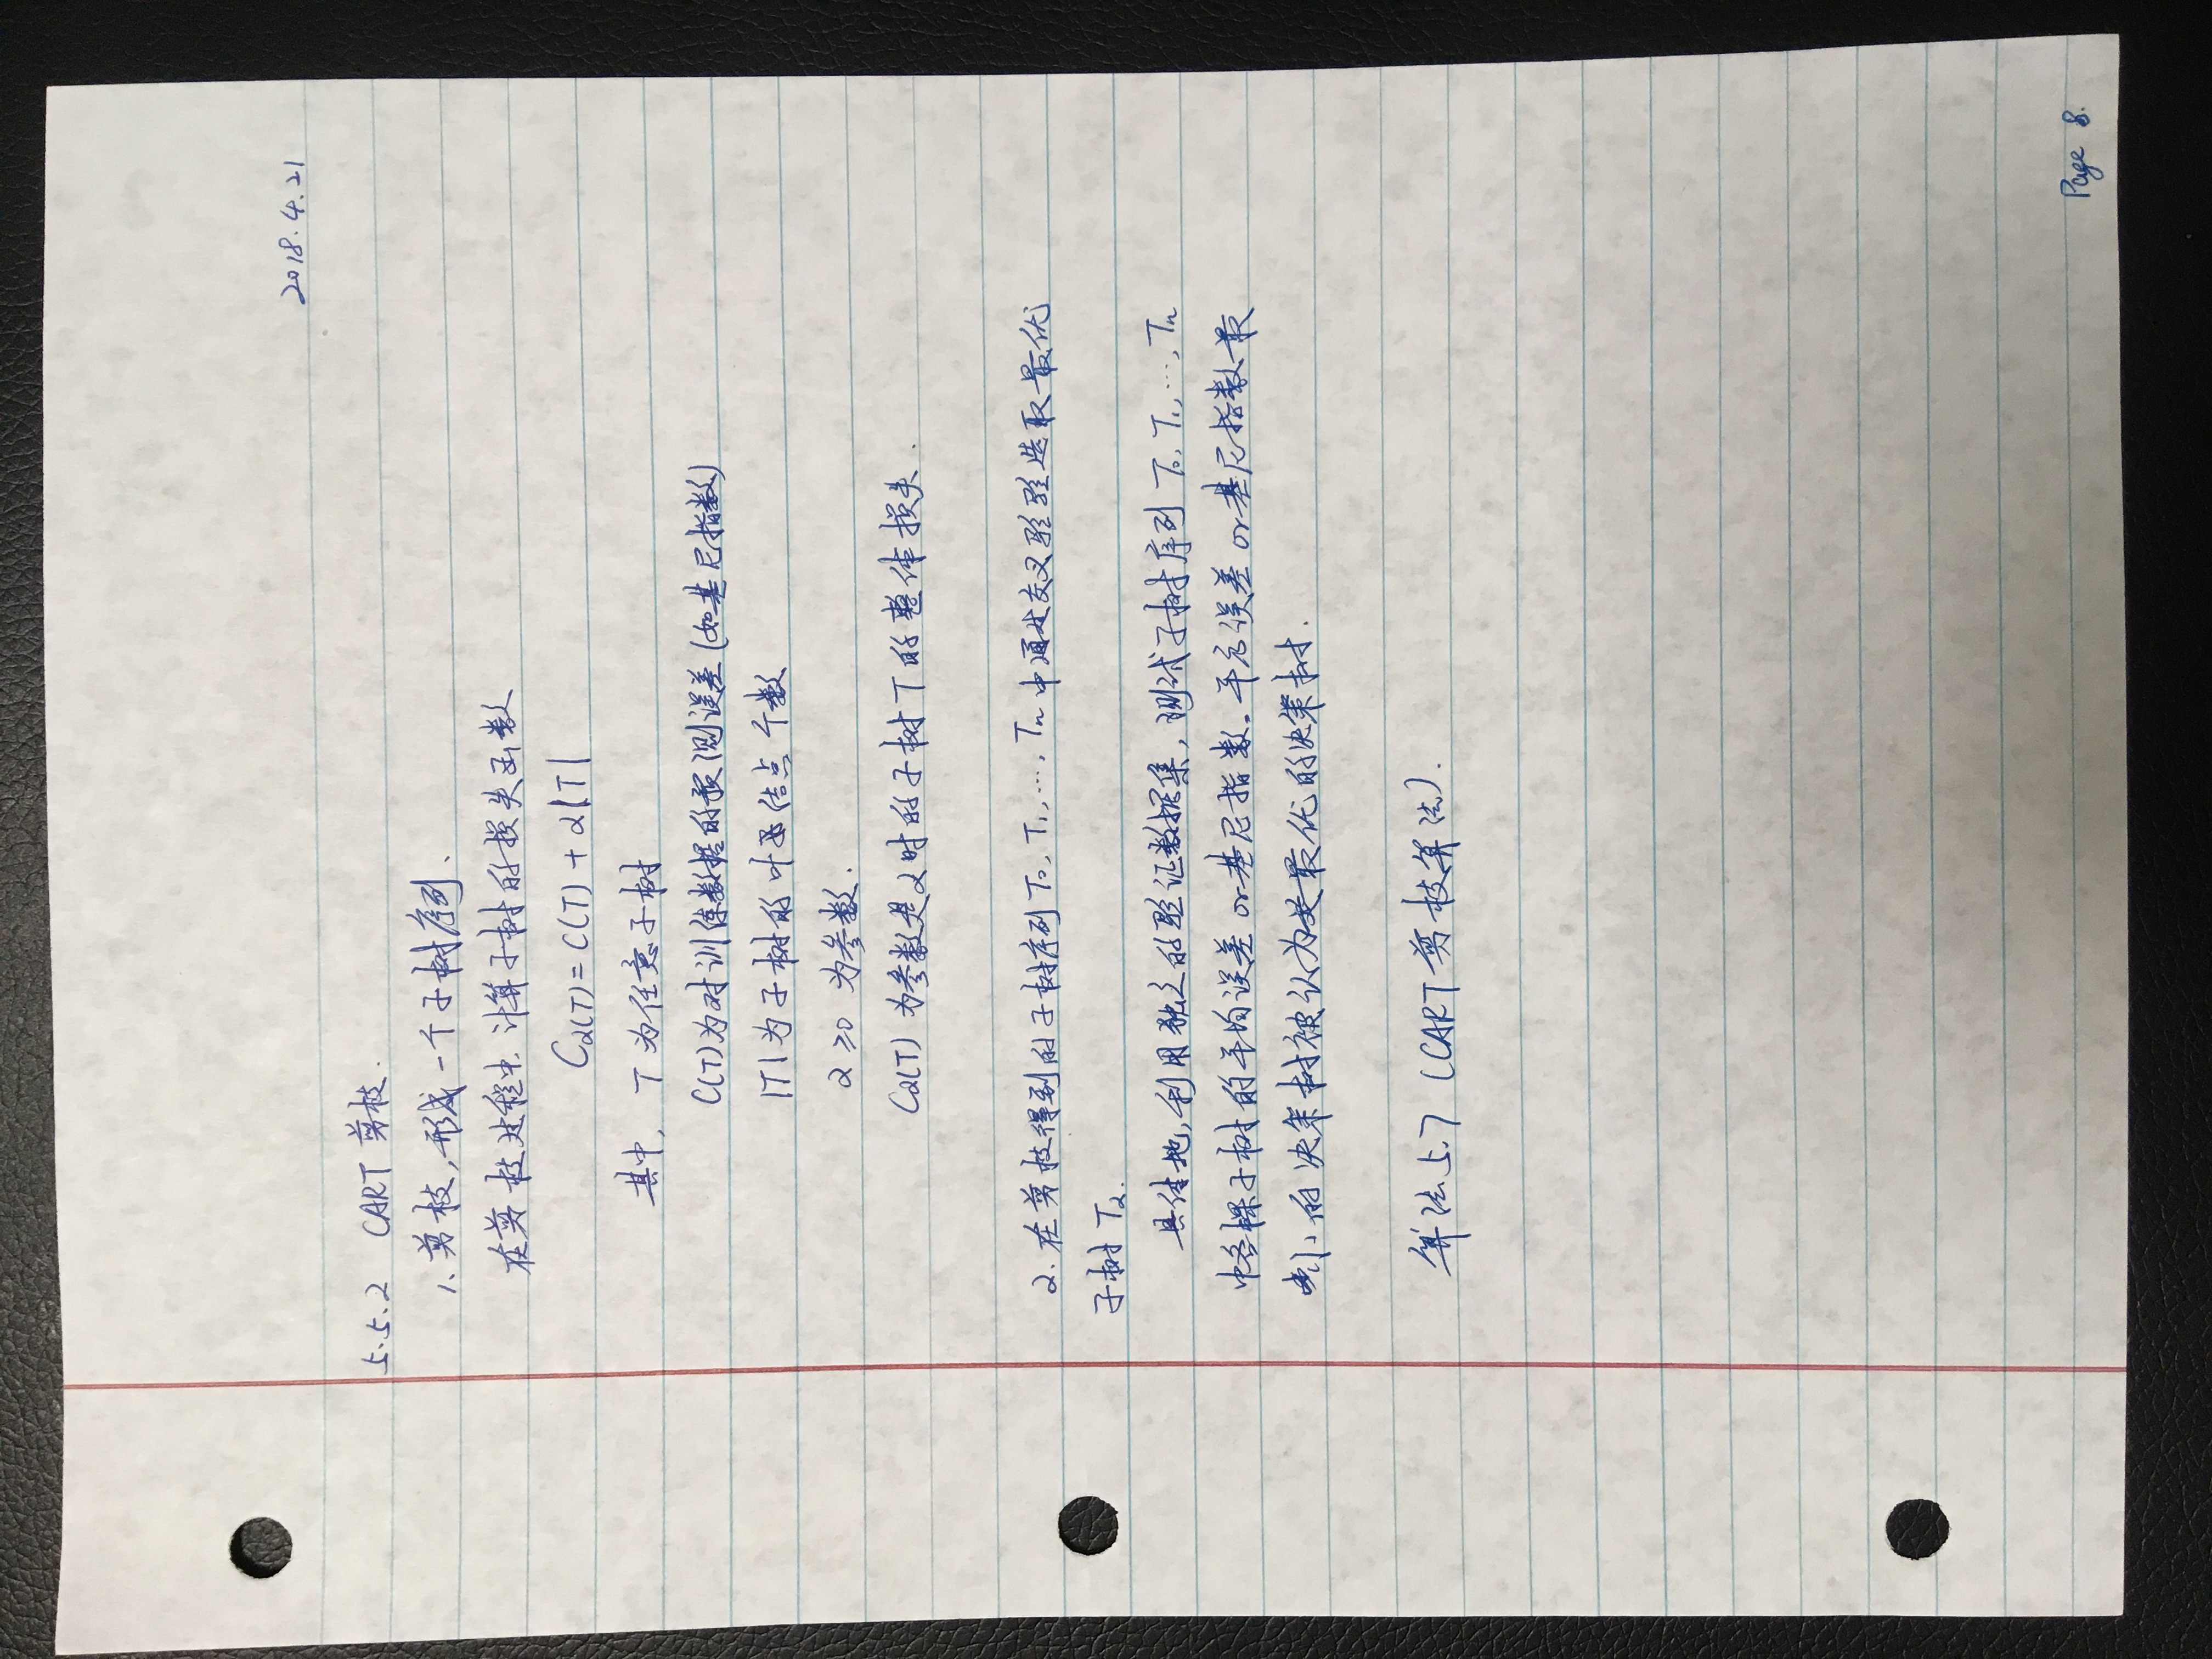 2018.4.21
5.5.2 CART 剪枝.
1. 剪枝,形成一个子树序列.
在剪枝过程中,计算子树的损失函数
Cα(T) = C(T) + α|T|
其中, T 为任意子树
C(T)为对训练数据的预测误差(如基尼指数)
|T|为子树的叶子结点个数
α ≥0 为参数.
Cα(T) 为参数是α时的子树T的整体损失.
2. 在剪枝得到的子树序列 T₀, T₁, ⋯, Tn 中通过交叉验验选取最优
子树 Tα.
具体地,利用独立的验证数据集, 测试子树序列 T₀, T₁, ⋯, Tn
中各棵子树的平均误差 or 基尼指数。平方误差 or 基尼指数最
小的决策树被认为是最优的决策树.
算法5.7 (CART 剪枝算法).
Page 8.